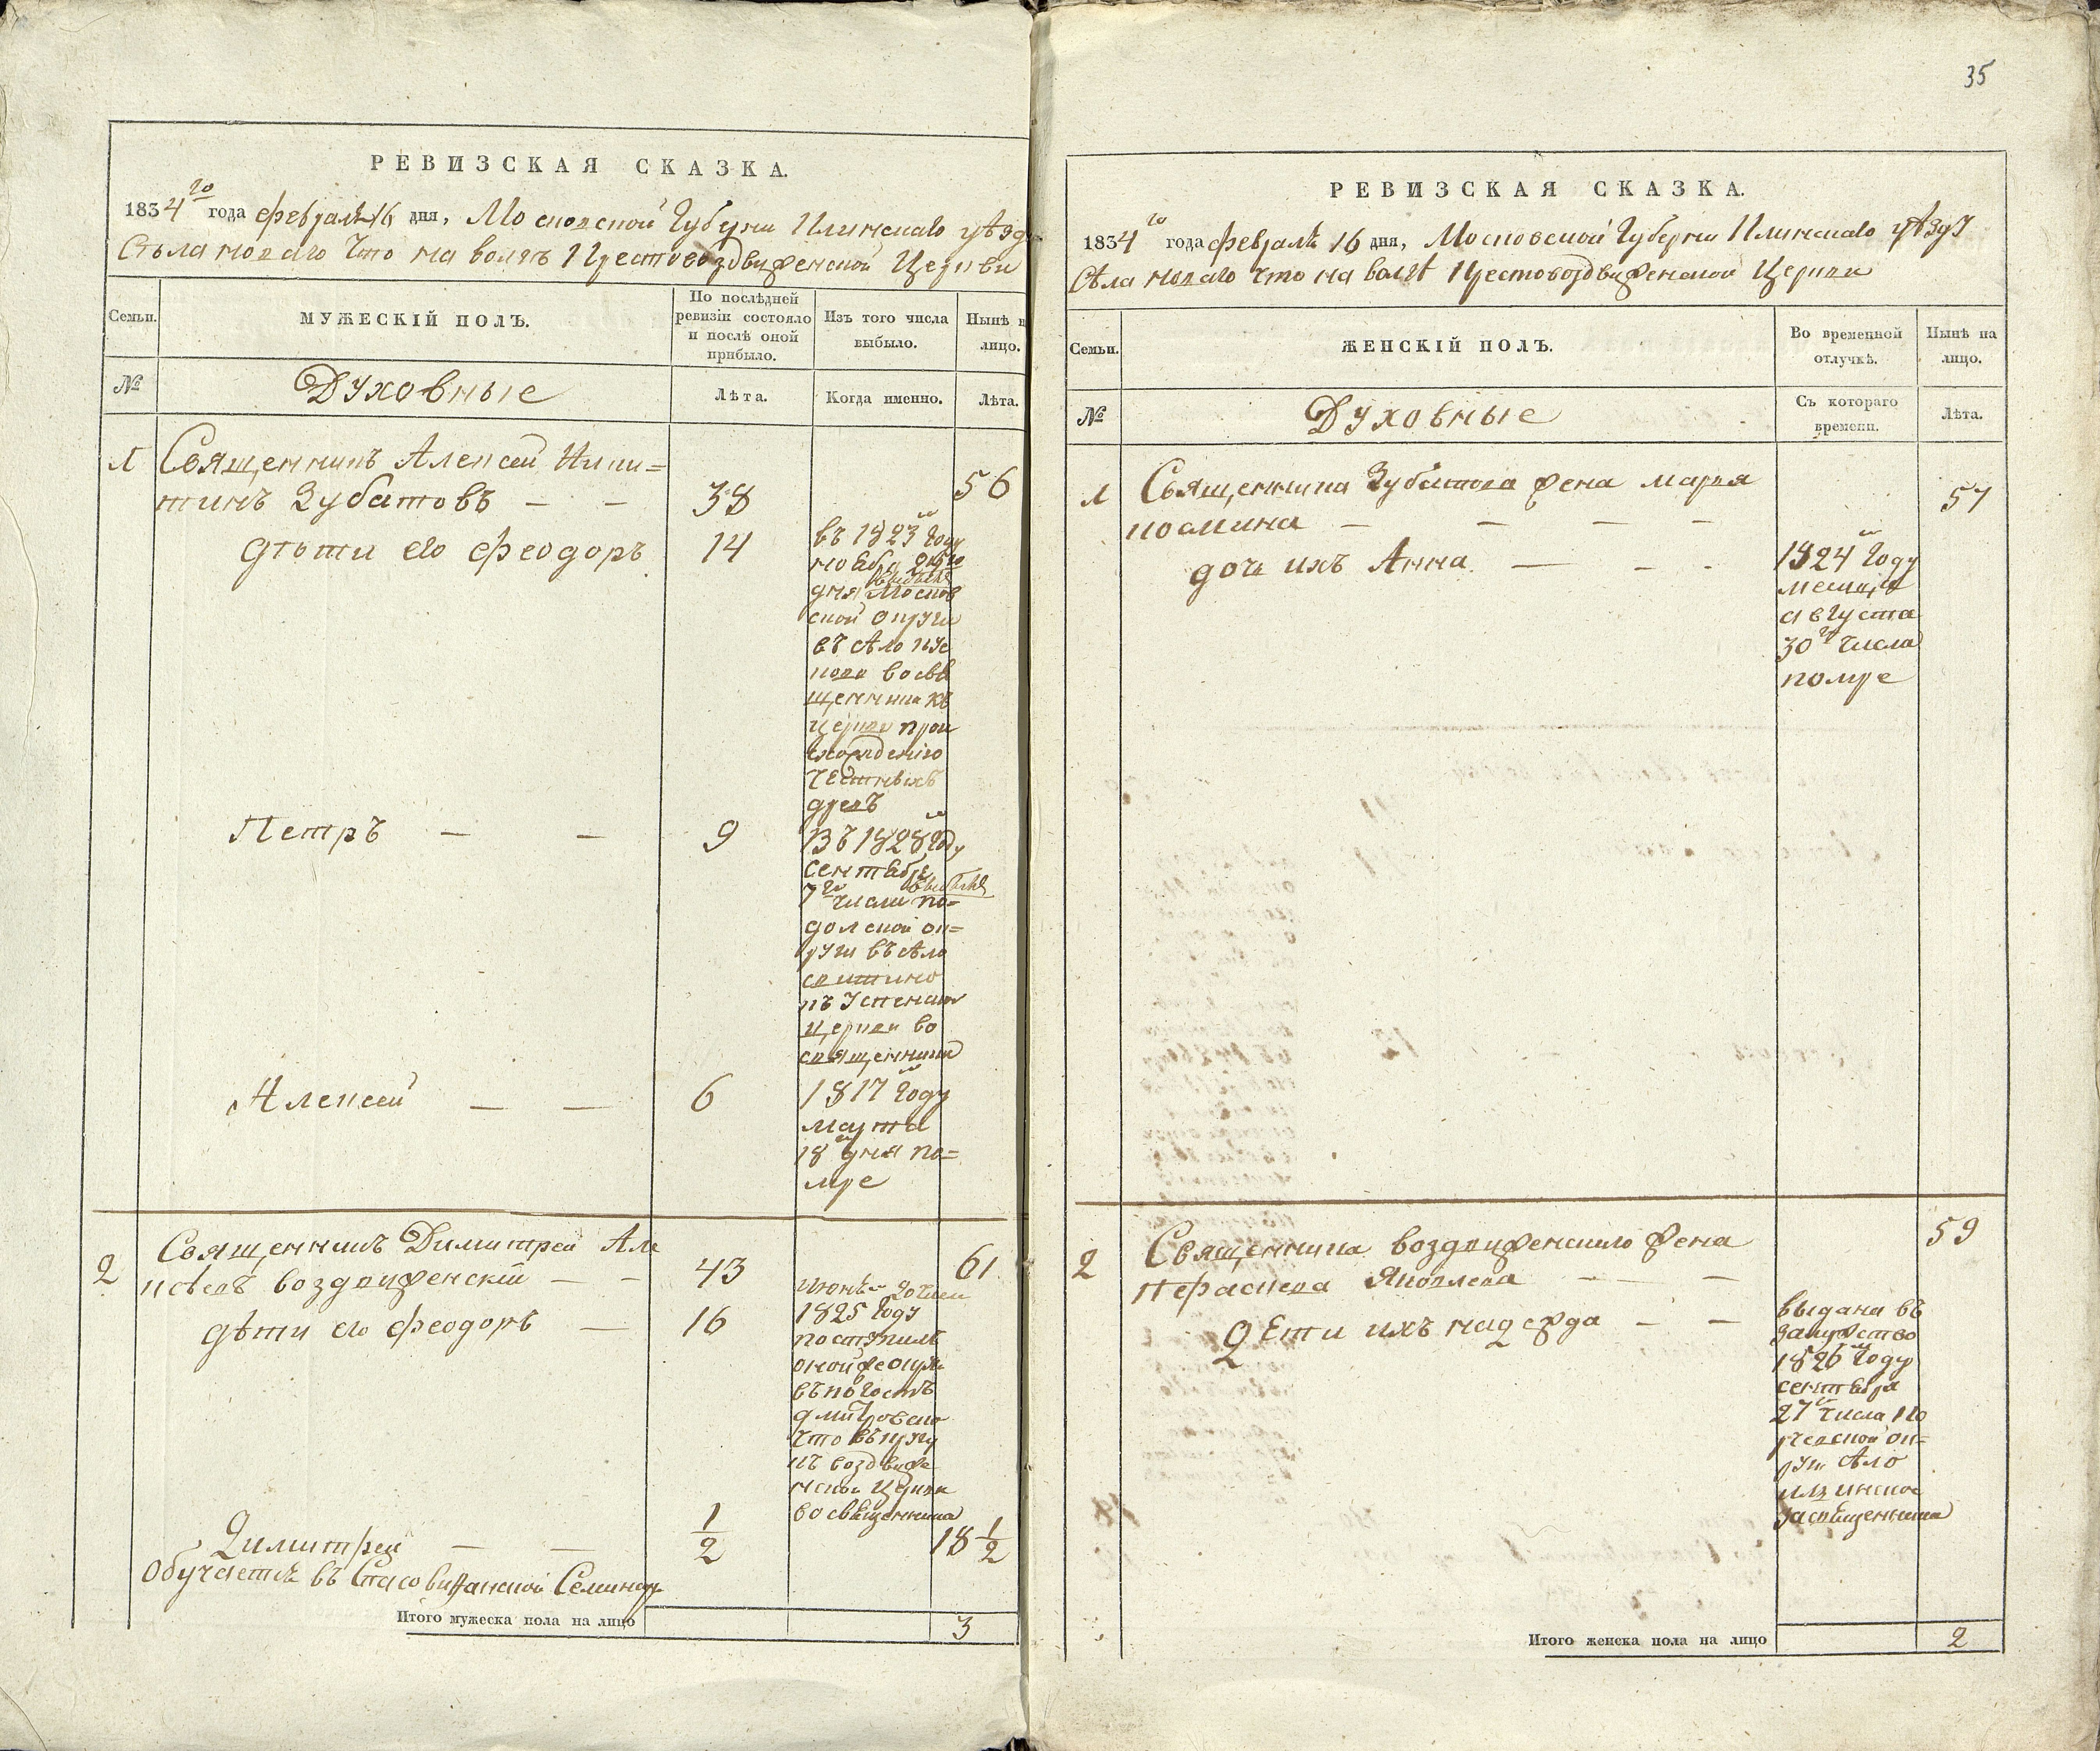 РЕВИЗСКАЯ СКАЗКА.
1834го года февраля 16 дня, Московской Губерни Клинскаго уѣзд
Стьла новаго что на волѣ Крестовоздвиженской Церкви
Семьи.
МУЖЕСКІЙ ПОЛЪ.
По послѣдней
ревизіи состояло
и послѣ оной
прибыло.
Изъ того числа
выбыло.
Нынѣ н
лицо.
№
Духовные
Лѣта.
Когда именно.
Лѣта.
1 Священникъ Алексей Ники=
тинъ Зубатовъ — — 38 56
дѣти его Феодоръ 14
въ 1823м Году
ноября
дня выбылъ Москов
ской округи
въ сѣло
во свя
щенника къ
церкви прои
схожденію
честныхъ
древъ
Петръ — — 9
Въ 1828м Году
сентября
7го числа выбылъ по=
долской ок=
руги въ сѣло
свитино
къ Успенской
церкви во
священника
Алексей — — 6
1817м Году
марта
18го дня по=
мре
2 Священникъ Димитрей Але
ксѣевъ воздвиженскій — — 43 61
дѣти его Феодоръ — 16
июнь 20 числ
1825 Году
поступилъ
оной же округи
въ погостъ
дмитровско
что въ кругу
къ воздвиже
нской Церкви
во священника
Димитрей — — 1/2 18 1/2
Обучается въ Спасо Вифанской Семинар
Итого мужеска пола на лицо 3
35
РЕВИЗСКАЯ СКАЗКА.
1834го года февраля 16 дня, Московской Губерни Клинскаго уѣзду
Сѣла новаго что на волѣ Крестовоздвиженской Церкви
Семьи.
ЖЕНСКІЙ ПОЛЪ.
Во временной
отлучкѣ.
Нынѣ на
лицо.
№
Духовные
Съ котораго
времени.
Лѣта.
1 Священника Зубатова жена Марья
козмина — — — — 57
дочь ихъ Анна — — -
1824м Году
месяца
августа
30го числа
помре
2 Священника воздвиженскаго жена
Параскева Яковлева — — 59
Дети ихъ надежда — —
выдана въ
замужство
1826м Году
сентября
27го числа
ок=
руги сѣло
ильинское
за священника
Итого женска пола на лицо 2